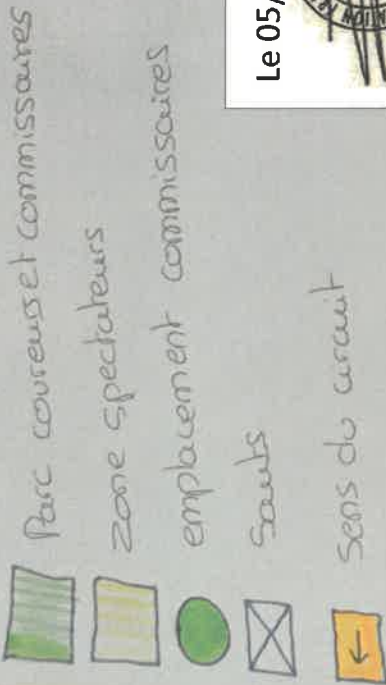 Parc coureurs et commissaires
zone spectateurs
emplacement commissaires
Sauts
Sens du circuit
Le 05/